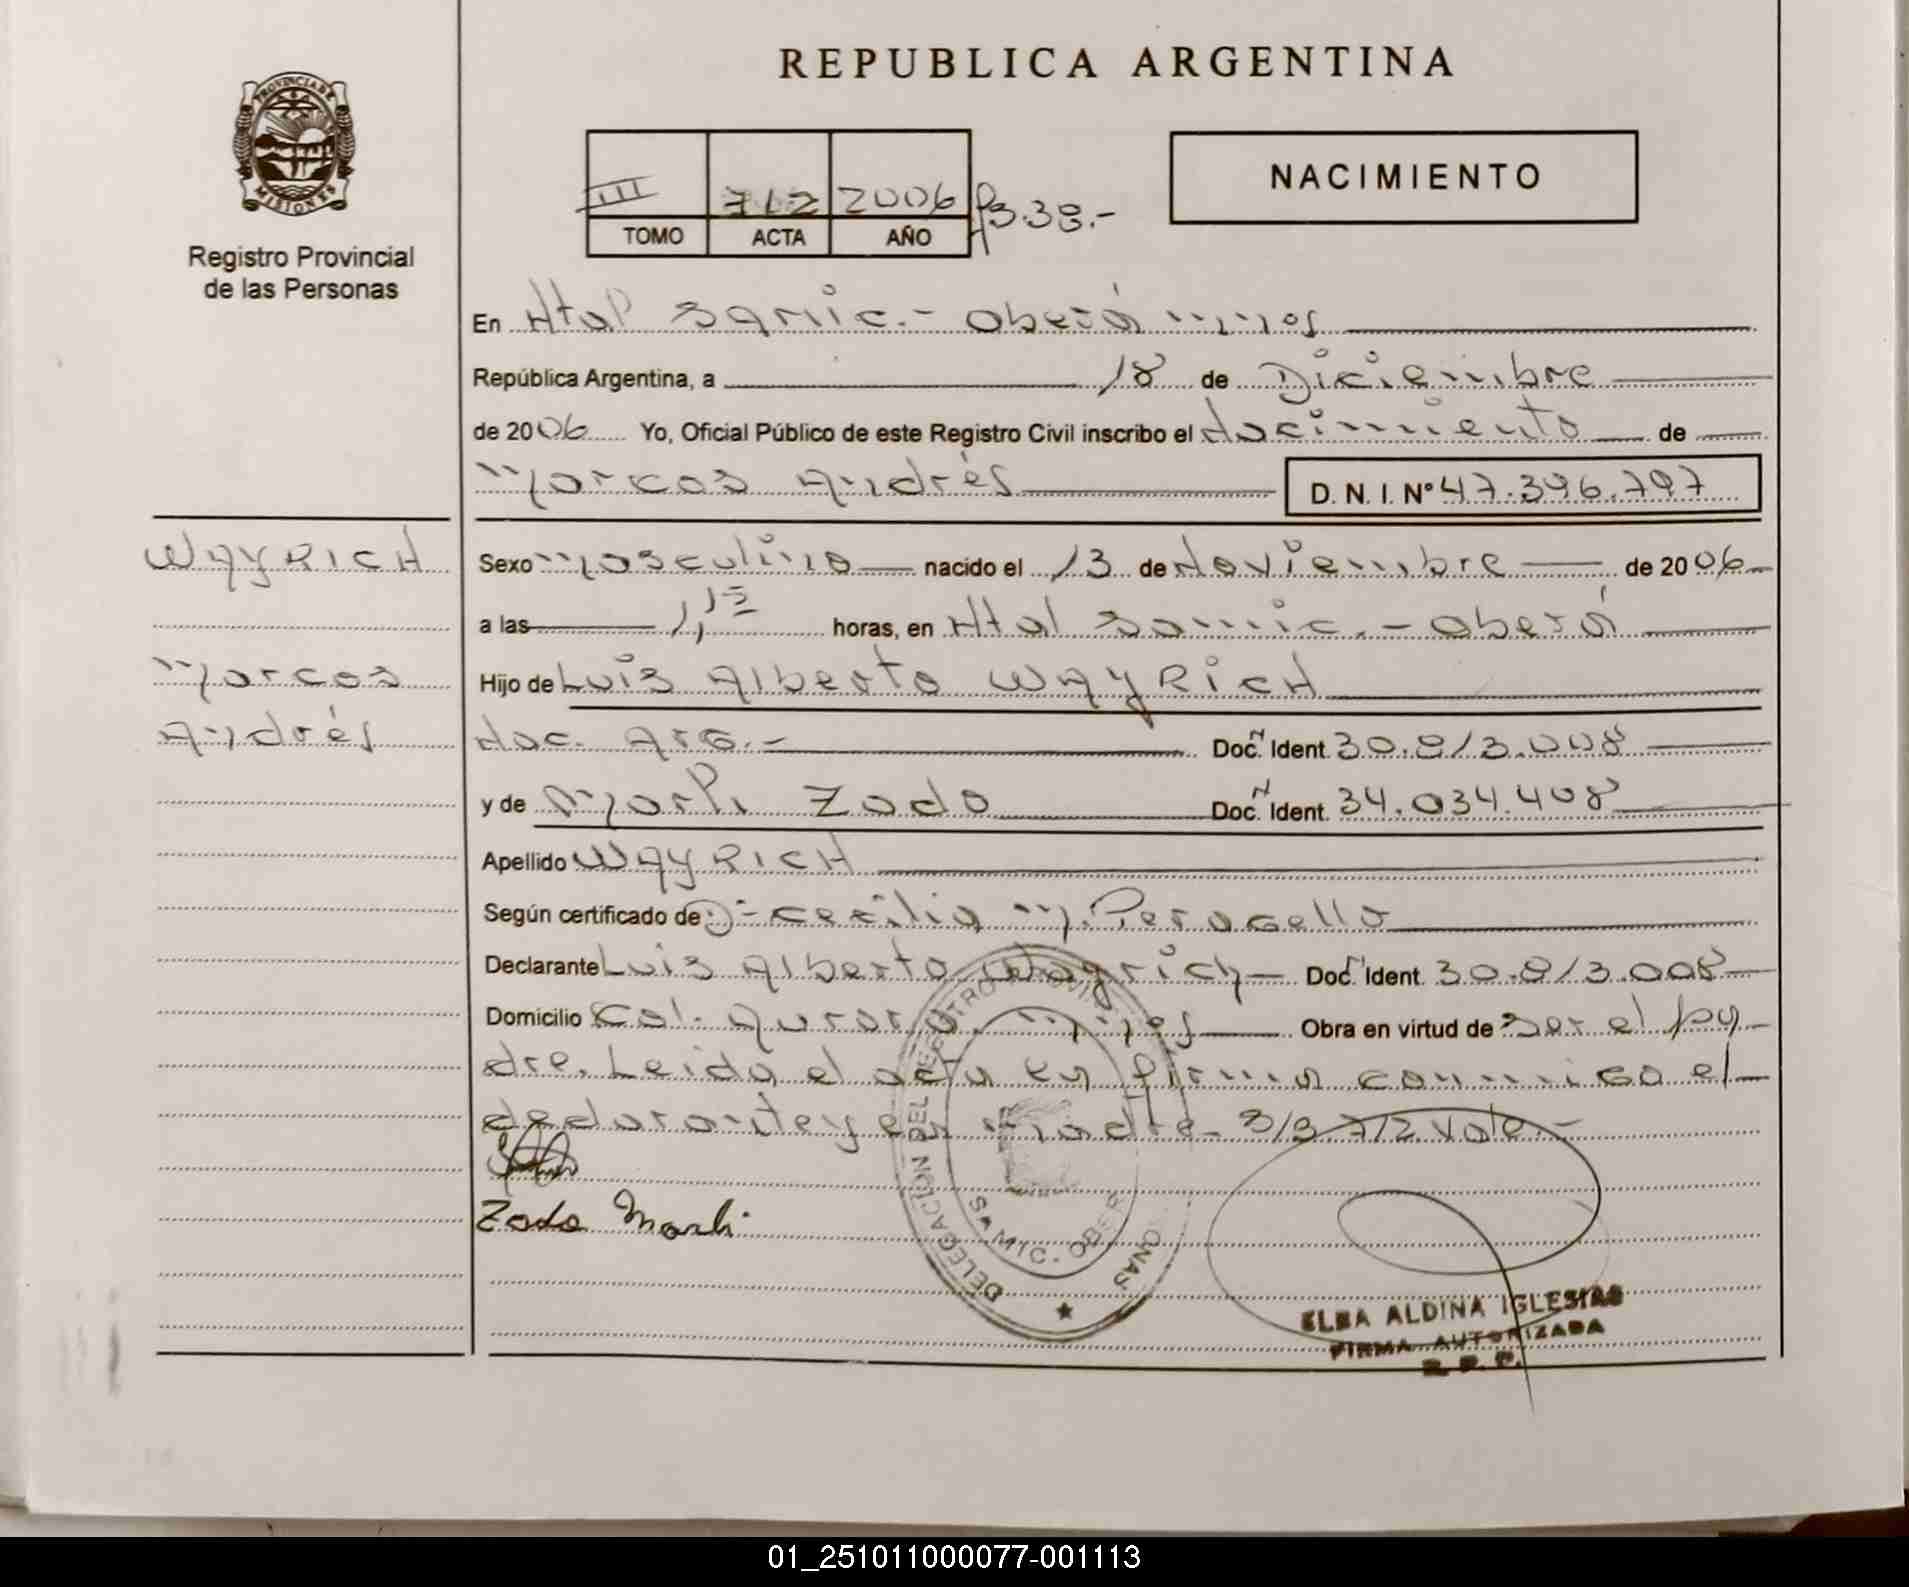 REPUBLICA ARGENTINA
PROVINCIA DE MISIONES
Registro Provincial
de las Personas
III 712 2006
TOMO ACTA AÑO
NACIMIENTO
En Htal Samic.- Oberá Mnes
República Argentina, a 18 de Diciembre
de 2006 Yo, Oficial Público de este Registro Civil inscribo el Nacimiento de
Marcos Andrés D. N. I. Nº 47.396.797
WAYRICH
Marcos
Andrés
Sexo Masculino nacido el 13 de Noviembre de 2006
a las horas, en Htal Samic.- Oberá
Hijo de Luis Alberto WAYRICH
Nac. Arg.- Doc. Ident. 30.813.008
y de Marli Zado Doc. Ident. 34.034.408
Apellido WAYRICH
Según certificado de Cecilia M. Peragello
Declarante Luis Alberto Wayrich Doc. Ident. 30.813.008
Domicilio Col. Aurora Mnes Obra en virtud de ser el pa-
dre. Leida el acta en firman conmigo el
declarante y en madre- 712 Vale.-
Zado Marli
DELEGACION DEL REGISTRO PROVINCIAL
SAMIC - OBERA
ELBA ALDINA IGLESIAS
FIRMA AUTORIZADA
R. P. P.
01_251011000077-001113